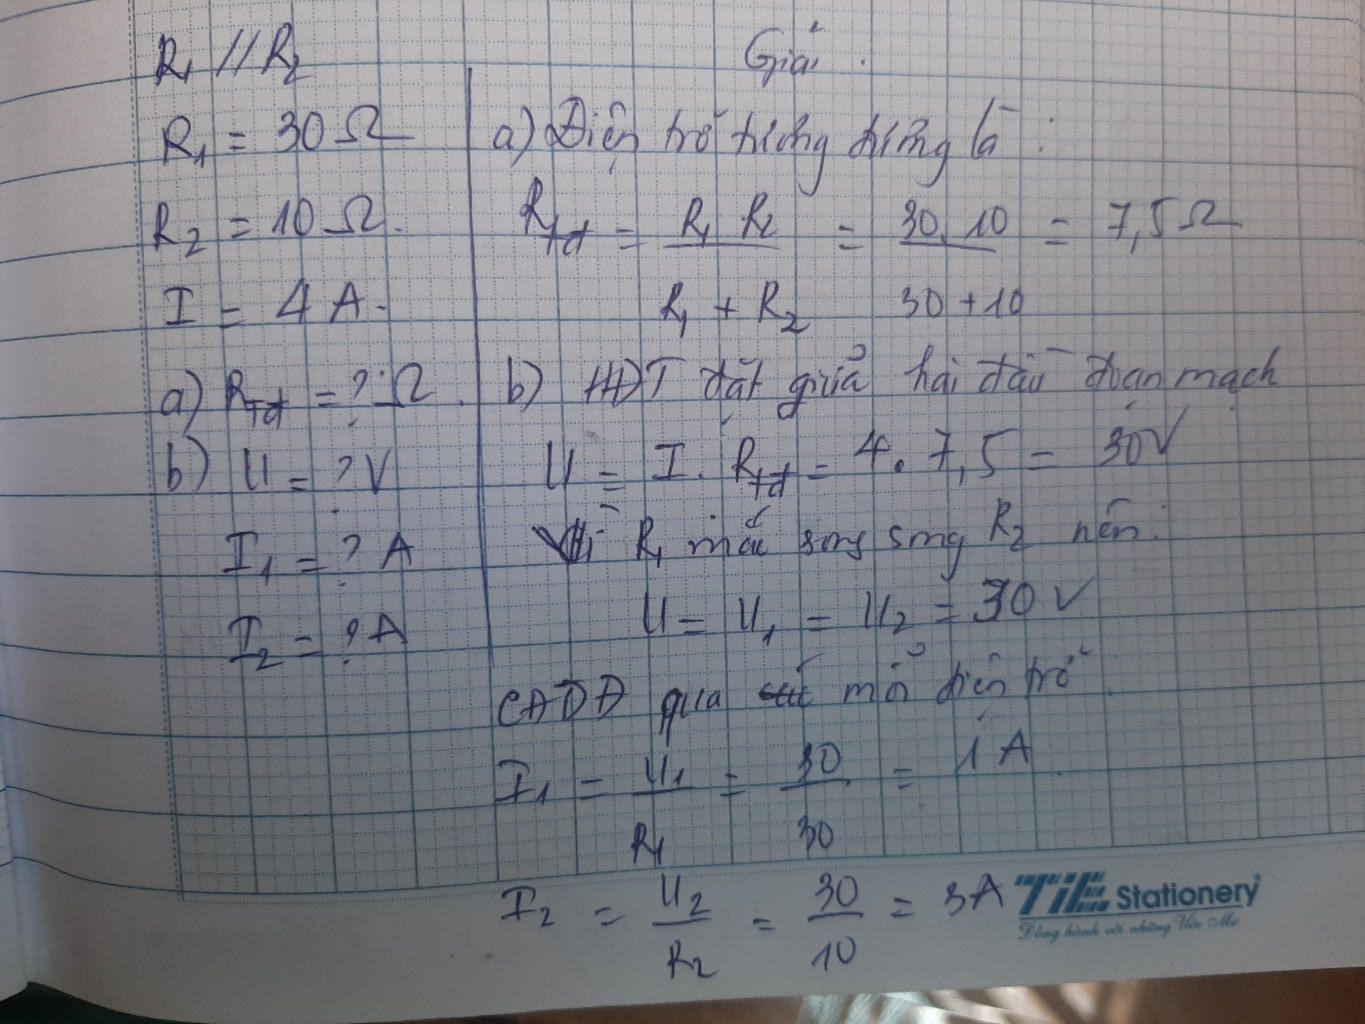 R₁ // R₂
R₁ = 30 Ω
R₂ = 10 Ω.
I = 4 A.
a) Rtđ = ? Ω.
b) U = ? V
I₁ = ? A
I₂ = ? A
Giải.
a) Điện trở tương đương là:
Rtđ = R₁ R₂ / R₁ + R₂ = 30.10 / 30 + 10 = 7,5 Ω
b) HĐT đặt giữa hai đầu đoạn mạch
U = I. Rtđ = 4. 7,5 = 30V
Vì R₁ mắc song song R₂ nên:
U = U₁ = U₂ = 30 V
CĐDĐ qua mỗi điện trở
I₁ = U₁ / R₁ = 30 / 30 = 1 A
I₂ = U₂ / R₂ = 30 / 10 = 3A
TiE Stationery
Đồng hành với những Ước Mơ